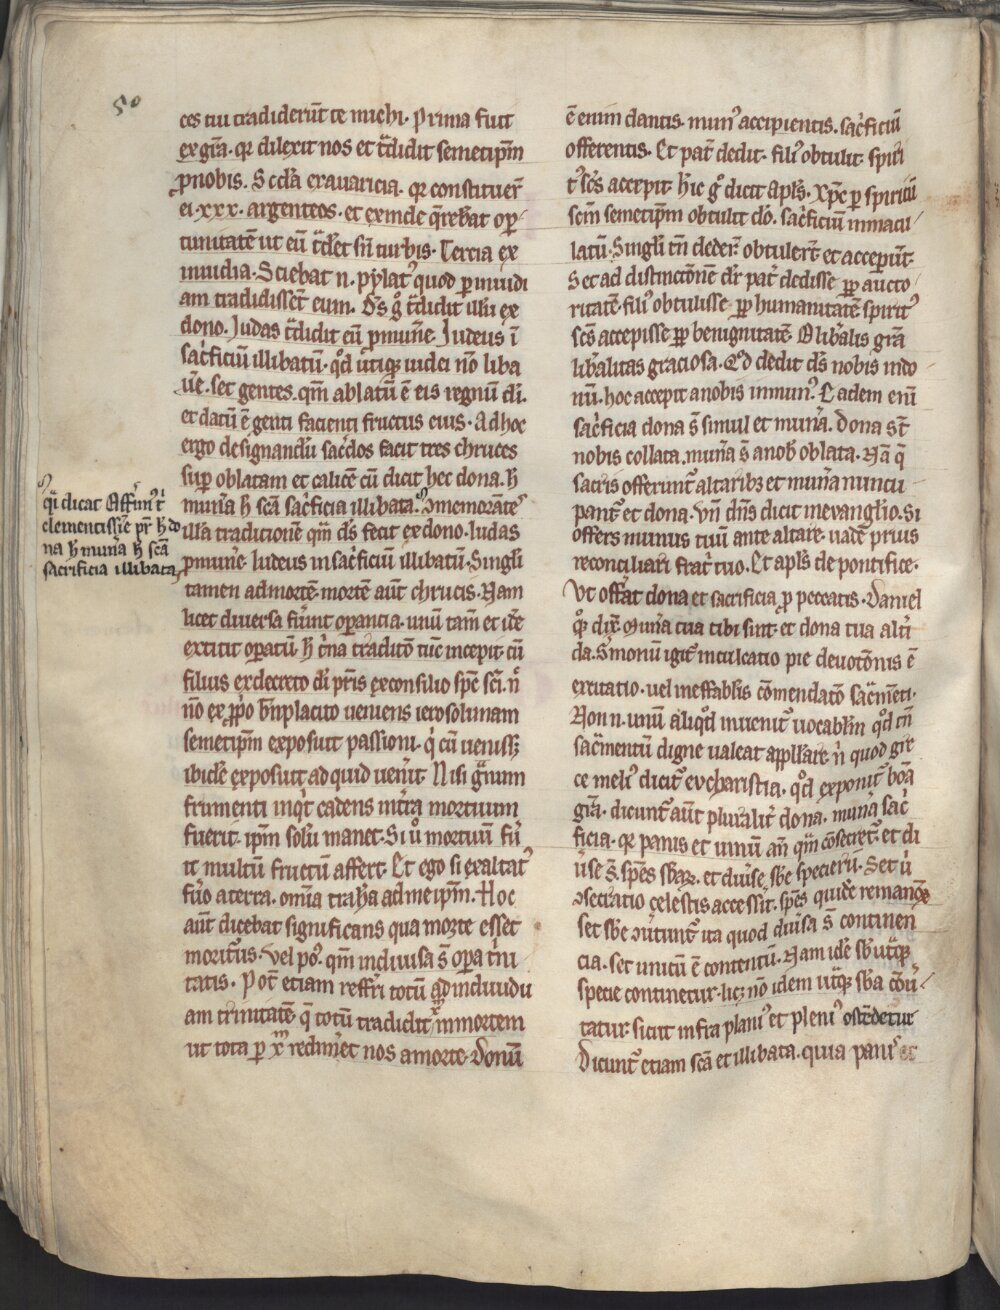 50
ces tui tradiderūt te michi. Prima fuit
ex gr̄a. qr dilexit nos et t͛didit semetip̄m
ꝓ nobis. Scd̄a ex auaricia. qr constituer̄t
ei .xxx. argenteos. et exinde q̄rebat opor⸗
tunitatē ut eū t͛det sn̄ turbis. Tercia ex
inuidia. Sciebat n̄. pylatꝰ quod ꝑ inuidi
am tradidissēt eum. Ds̄ gͦ t͛didit illū ex
dono. Iudas t͛didit eū ꝓ mun̄e. Iudeus ī
sac͛ficiū illibatū. qd̄ utiqꝫ iudei nō liba
uer̄. set gentes. qm̄ ablatū ē eis regnū dī.
et datū ē genti facienti fructus eius. Ad hoc
ergo designandū sac͛dos facit tres chruces
suꝑ oblatam et calicē cū dicit hec dona. h̄
mun̄a h̄ scā sac͛ficia illibata. Ɔmemorātes
illā traditionē qm̄ ds̄ fecit ex dono. Iudas
ꝓ mun̄e. Iudeus in sac͛ficiū illibatū. Singl̄i
tamen ad mortē. mortē aūt chrucis. Nam
licet diuersa fuīnt oꝑantia. unū tam̄ et idē
extitit oꝑatū. h̄ t͛na traditō tūc incepit. cū
filius ex decreto dī pr̄is ex consilio spc̄ scī. n̄
nō ex ꝓp̄o bn̄placito ueniens ierosolimam
semetip̄m exposuit passioni. qͥ cū uenissꝫ
ibidē exposuit ad quid uenīt. Nisi g͛num
frumenti inqͥt cadens in t͛ra mortuum
fuerit. ip̄m solū manet. Si uͦ mortuū fū
it multū fructū affert. Et ego si exaltatꝰ
fūo a terra. omīa trahā ad me ip̄m. Hoc
aūt dicebat significans qua morte esset
moritꝰus. Vel poͭ. qm̄ indiuisa s̄ oꝑa t͛ni
tatis. Pot̄ etiam reffr̄i totū ad indiuidu
am trinitatē. q̄ totū tradidit x̄m in mortem
ut tota ꝑ x̄m redim̄et nos a morte. Donū
qn̄ dicat Assūmꝰ tͥ
clementissīe pr̄ h̄ do
na h̄ mun̄a h̄ scā
sacrificia illibata
ē enim dantis. munꝰ accipientis. sac͛ficiū
offerentis. Et pat̄ dedit. filiꝰ obtulit. spiri
tꝰ scs̄ accepit. hīc gͦ dicit apls̄. Xpc̄ ꝑ spiritū
scm̄ semetip̄m obtulit dō. sac͛ficiū inmacu
latū. Singl̄i tn̄ deder̄. obtuler̄t et acceꝑūt.
Set ad distinctōnē dr̄ pat̄ dedisse ꝓp̄ aucto
ritatē. filiꝰ obtulisse ꝓp̄ humanitatē spiritꝰ
scs̄ accepisse ꝓp̄ benignitatē. O lib̄alis gr̄a
lib̄alitas graciosa. Qd̄ dedit ds̄ nobis in do
nū. hoc accepit a nobis in munꝰ. Eadem enī
sac͛ficia dona s̄ simul et mun̄a. Dona s̄t
nobis collata. mun̄a s̄ a nob̄ oblata. Nā q̄
sacris offerunt̄ altaribꝫ et mun̄a nuncu
pant̄ et dona. vn̄ dn̄s dicit in euanglīo. Si
offers munus tuū ante altare. uade prius
reconciliari frat͛ tuo. Et apls̄ de pontifice.
Vt offat dona et sacrificia ꝓ peccatis. Daniel
qͦqꝫ dix̄. Mun̄a tua tibi sint. et dona tua alt͛i
da. S͛monū igit̄ inculcatio pie deuotōnis ē
excitatio. uel ineffabl̄is cōmendatō sac͛m̄ti.
Non n̄. unū aliqd̄ inuenitꝰ uocabl̄m qd̄ tn̄
sac͛mentū digne ualeat appll̄are. n̄ quod gre
ce meliꝰ dicitꝰ evcharistia. qd̄ exponitꝰ bōa
gr̄a. dicuntꝰ aūt pluralit̄ dona. mun̄a sac͛
ficia. qr panis et uinū an̄ qm̄ cōsecret̄. et di
uīse s̄. spēs sb̄aꝝ. et diuīse sb̄e specierū. Set ū
ɔsecratio celestis accessīt. spēs quidē remanēt
set sb̄e ɔutuntꝰ. ita quod diuīsa s̄ continen
cia. set unicū ē contentū. Nam idē sb̄ ut͛qꝫ
specie continetur. licꝫ nō idem ut͛qꝫ sb̄a cōu͛
tatur. sicut infra planiꝰ et pleniꝰ ostēdetur
Dicuntꝰ etiam scā et illibata. quia paniꝰ et